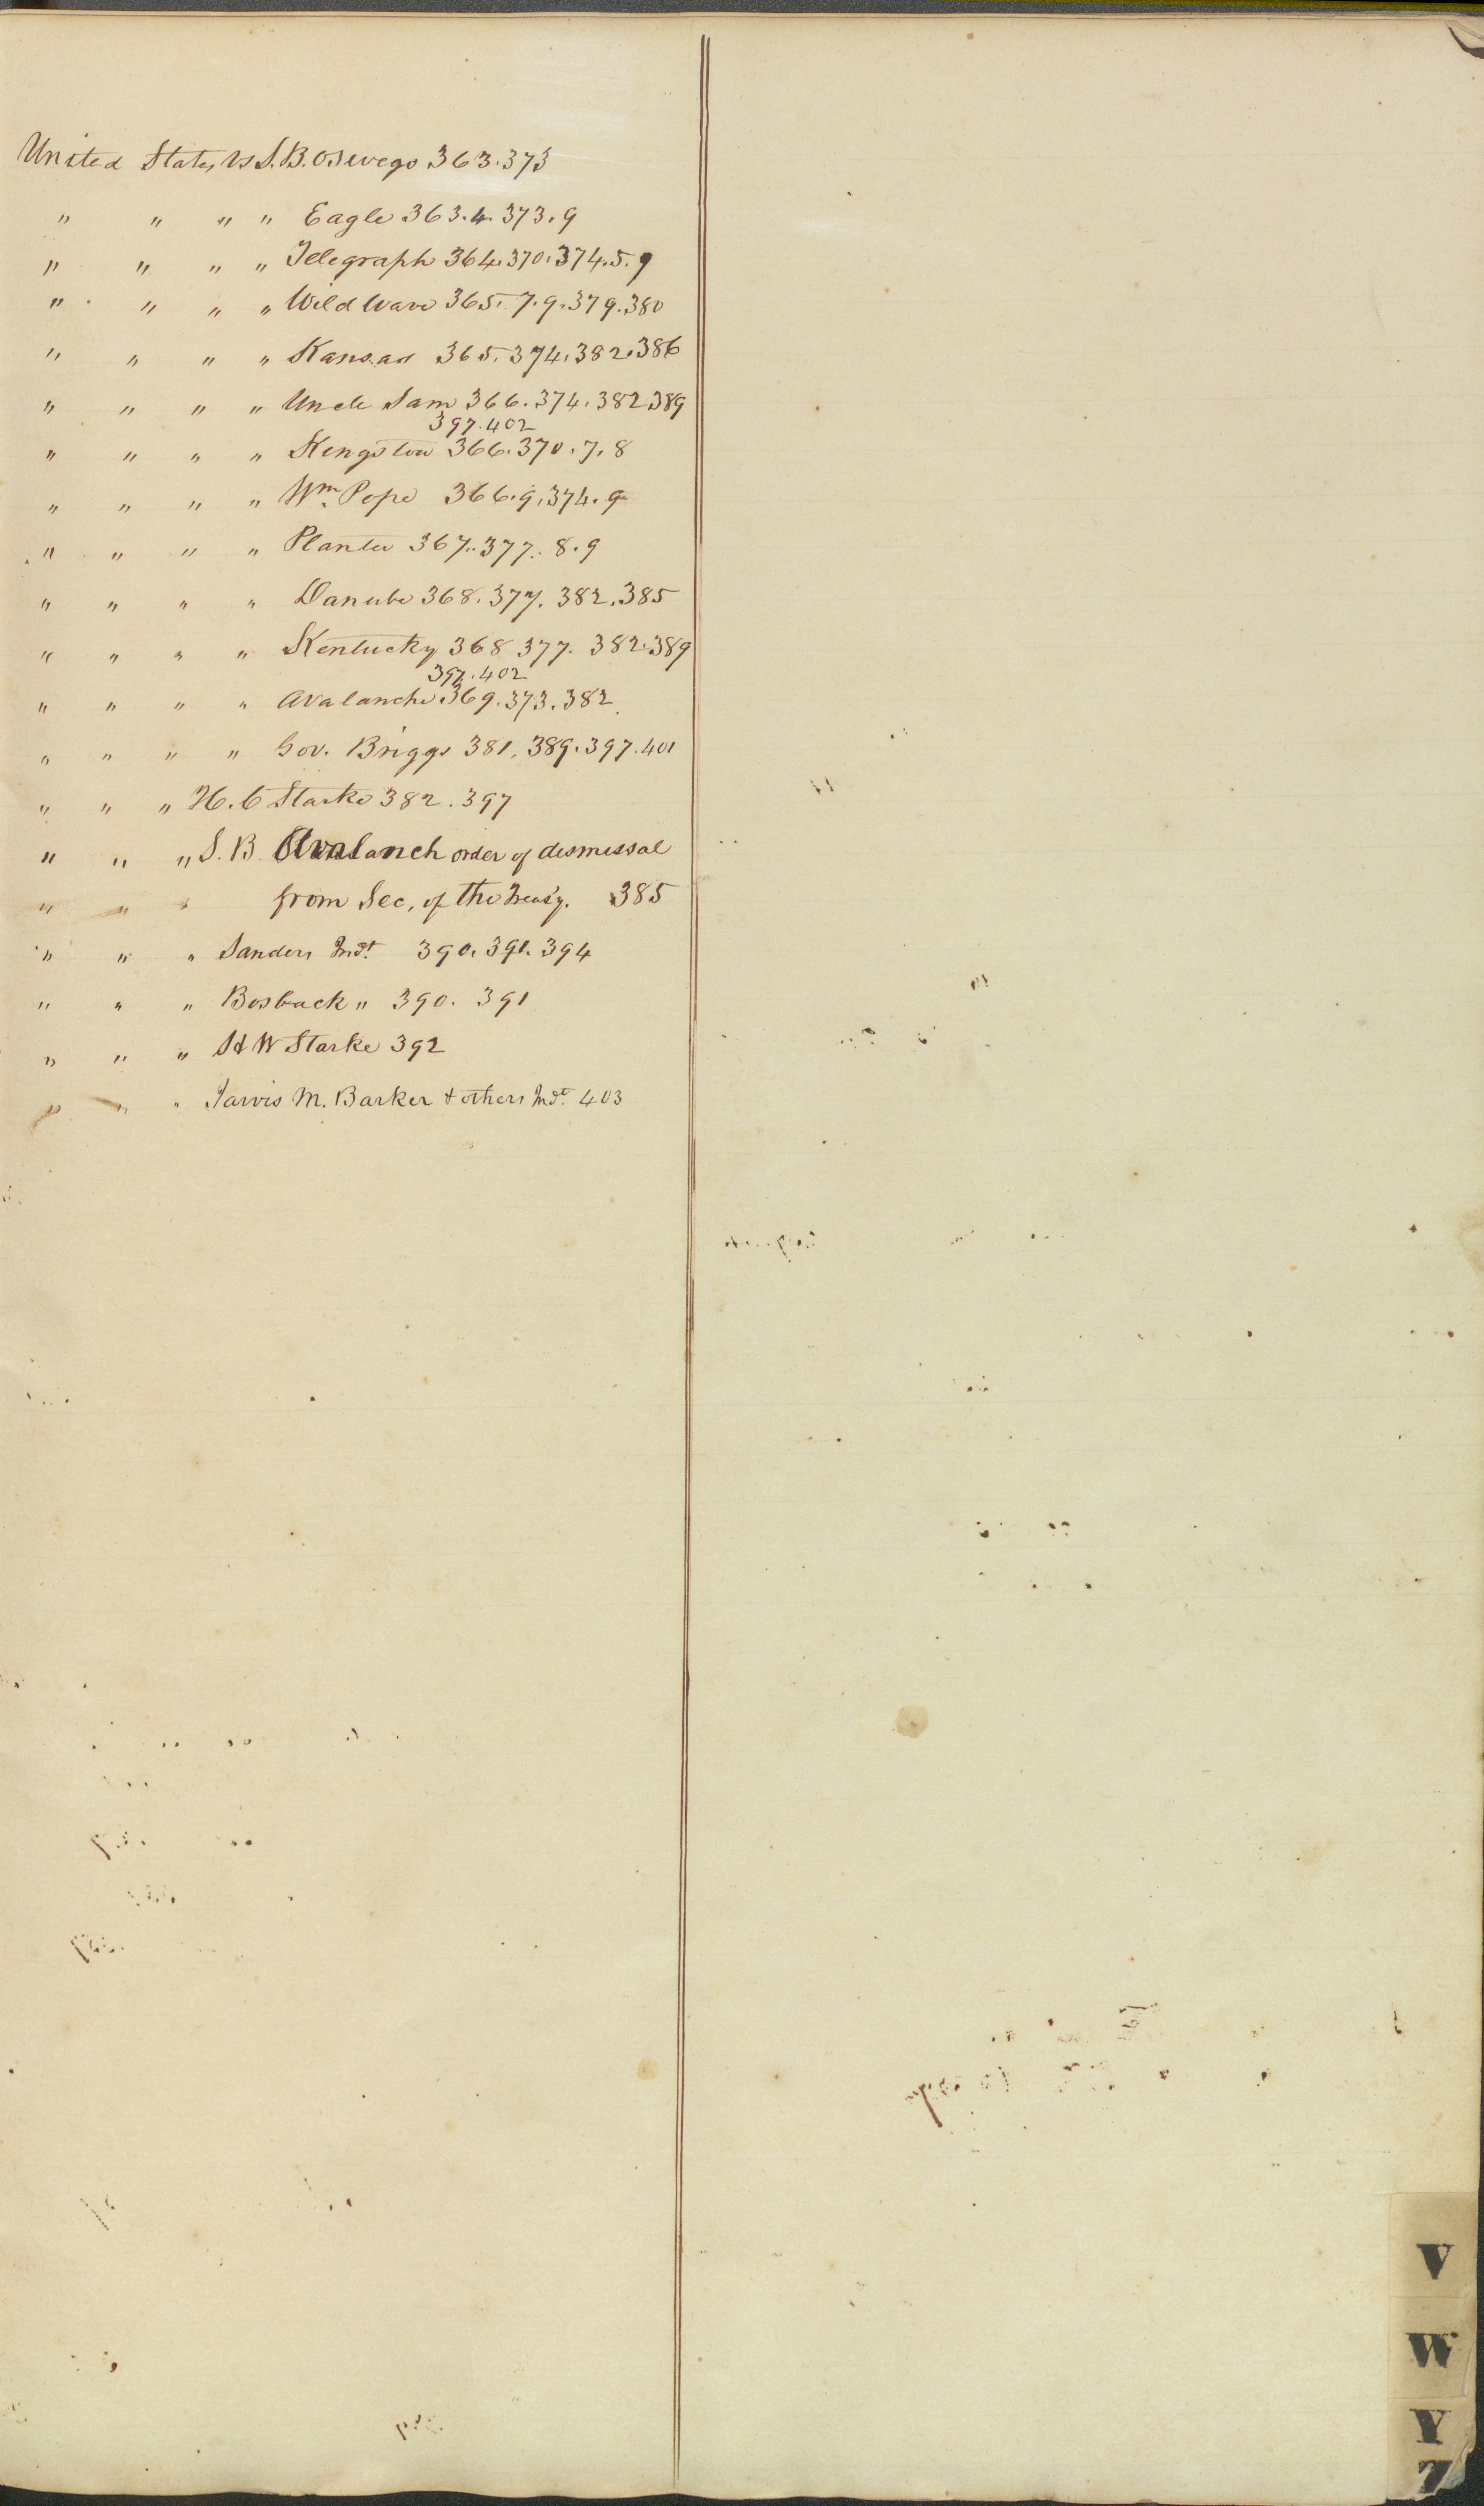 United States vs S.B. Oswego 363.373
" " " " Eagle 363.4.373.9
" " " " Telegraph 364.370.374.5.9
" " " " Wild Wave 365.7.9.379.380
" " " " Kansas 365.374.382.386
" " " " Uncle Sam 366.374.382.389
397.402
" " " " Kingston 366.370.7.8
" " " " Wm. Pope 366.9.374.9
" " " " Planter 367.377.8.9
" " " " Danube 368.377.382.385
" " " " Kentucky 368 377. 382.389
397.402
" " " " Avalanche 369.373.382.
" " " " Gov. Briggs 381.389.397.401
" " " H. C Starke 382.397
" " " S. B. Avalanch order of dismissal
" " " from Sec, of the Treasy. 385
" " " Sanders Indt. 390.391.394
" " " Bosback " 390. 391
" " " H W Starke 392
" " " Jarvis M. Barker + others Indt. 403
V
W
Y
Z